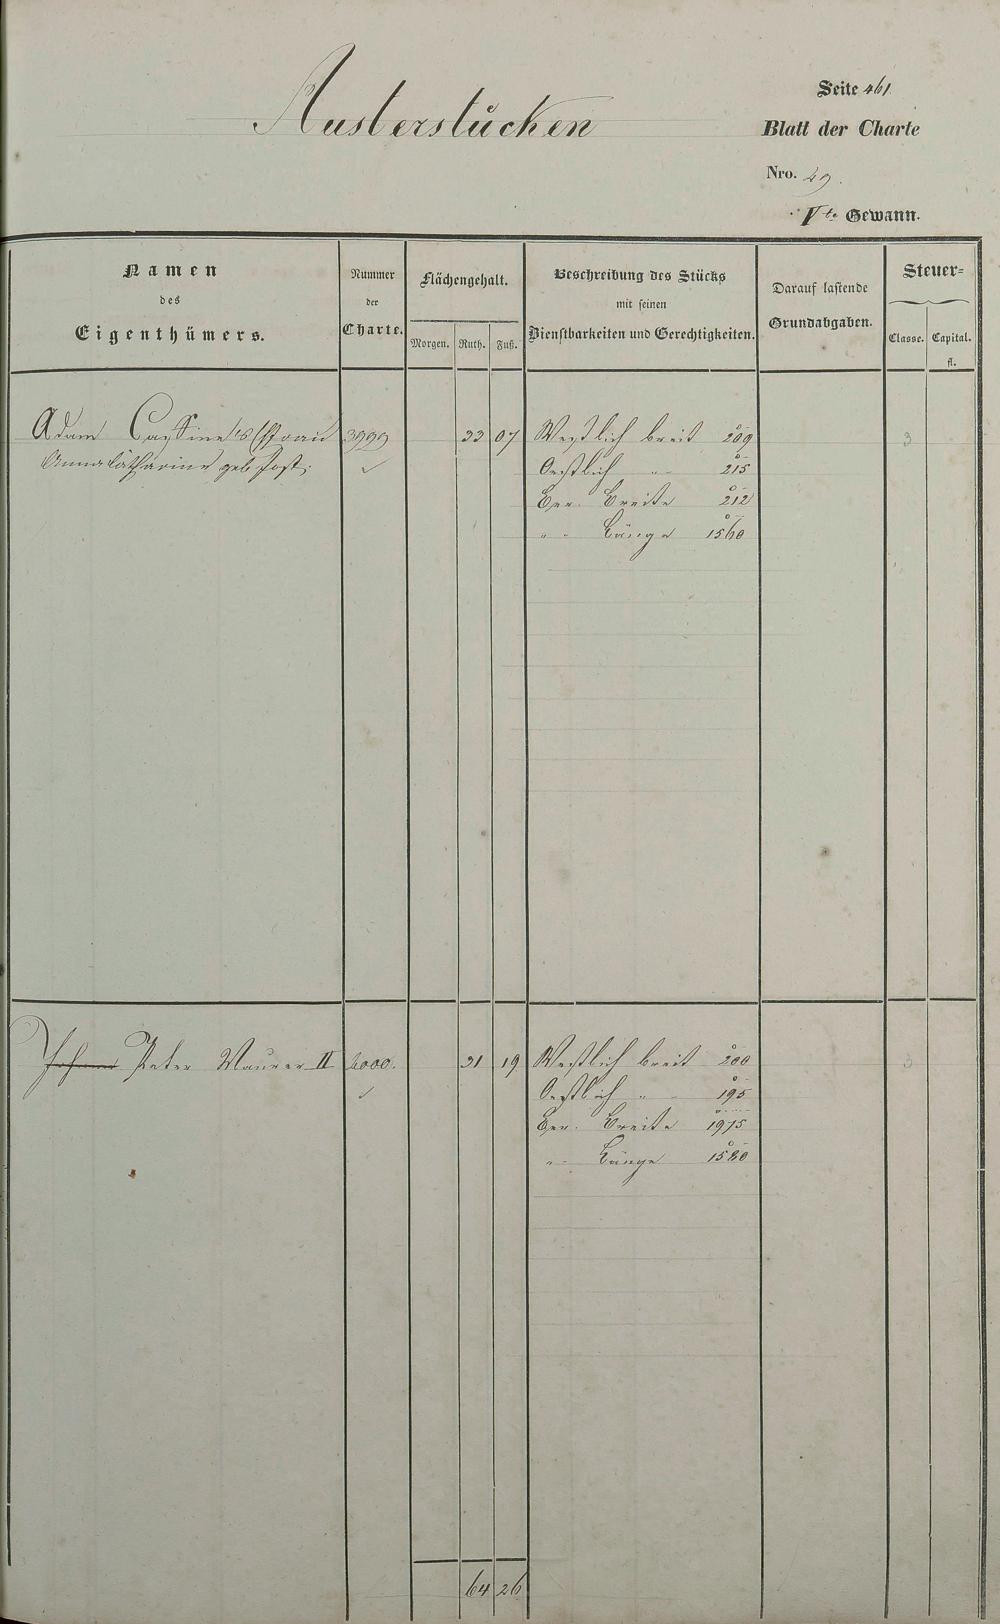 Austerstücken
Seite 461
Blatt der Charte
Nro. 49.
Vte Gewann.
Namen
des
Eigenthümers.
Nummer
der
Charte.
Flächengehalt.
Morgen. Ruth. Fuß.
Beschreibung des Stücks
mit seinen
Dienstbarkeiten und Gerechtigkeiten.
Darauf lastende
Grundabgaben.
Steuer=
Classe. Capital.
fl.
Adam Frau 3999 33 07 Westlich breit 209 3
Anna Catharine geb. Jost. Oestlich " 215
Ger. Breite 212
" " Länge 1560
Johann Peter Maurer II 4000. 31 19 Westlich breit 200 3
Oestlich " 195
Ger. Breite 1975
" Länge 1580
64 26